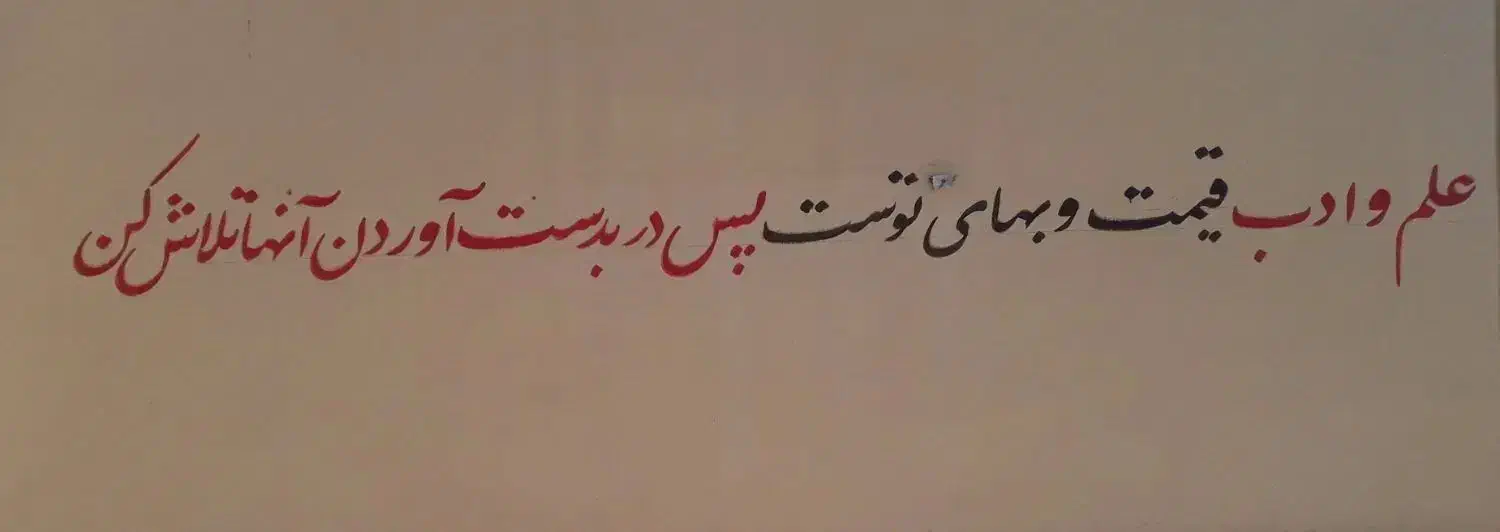 علم و ادب قیمت و بهای توست پس در بدست آوردن آنها تلاش کن